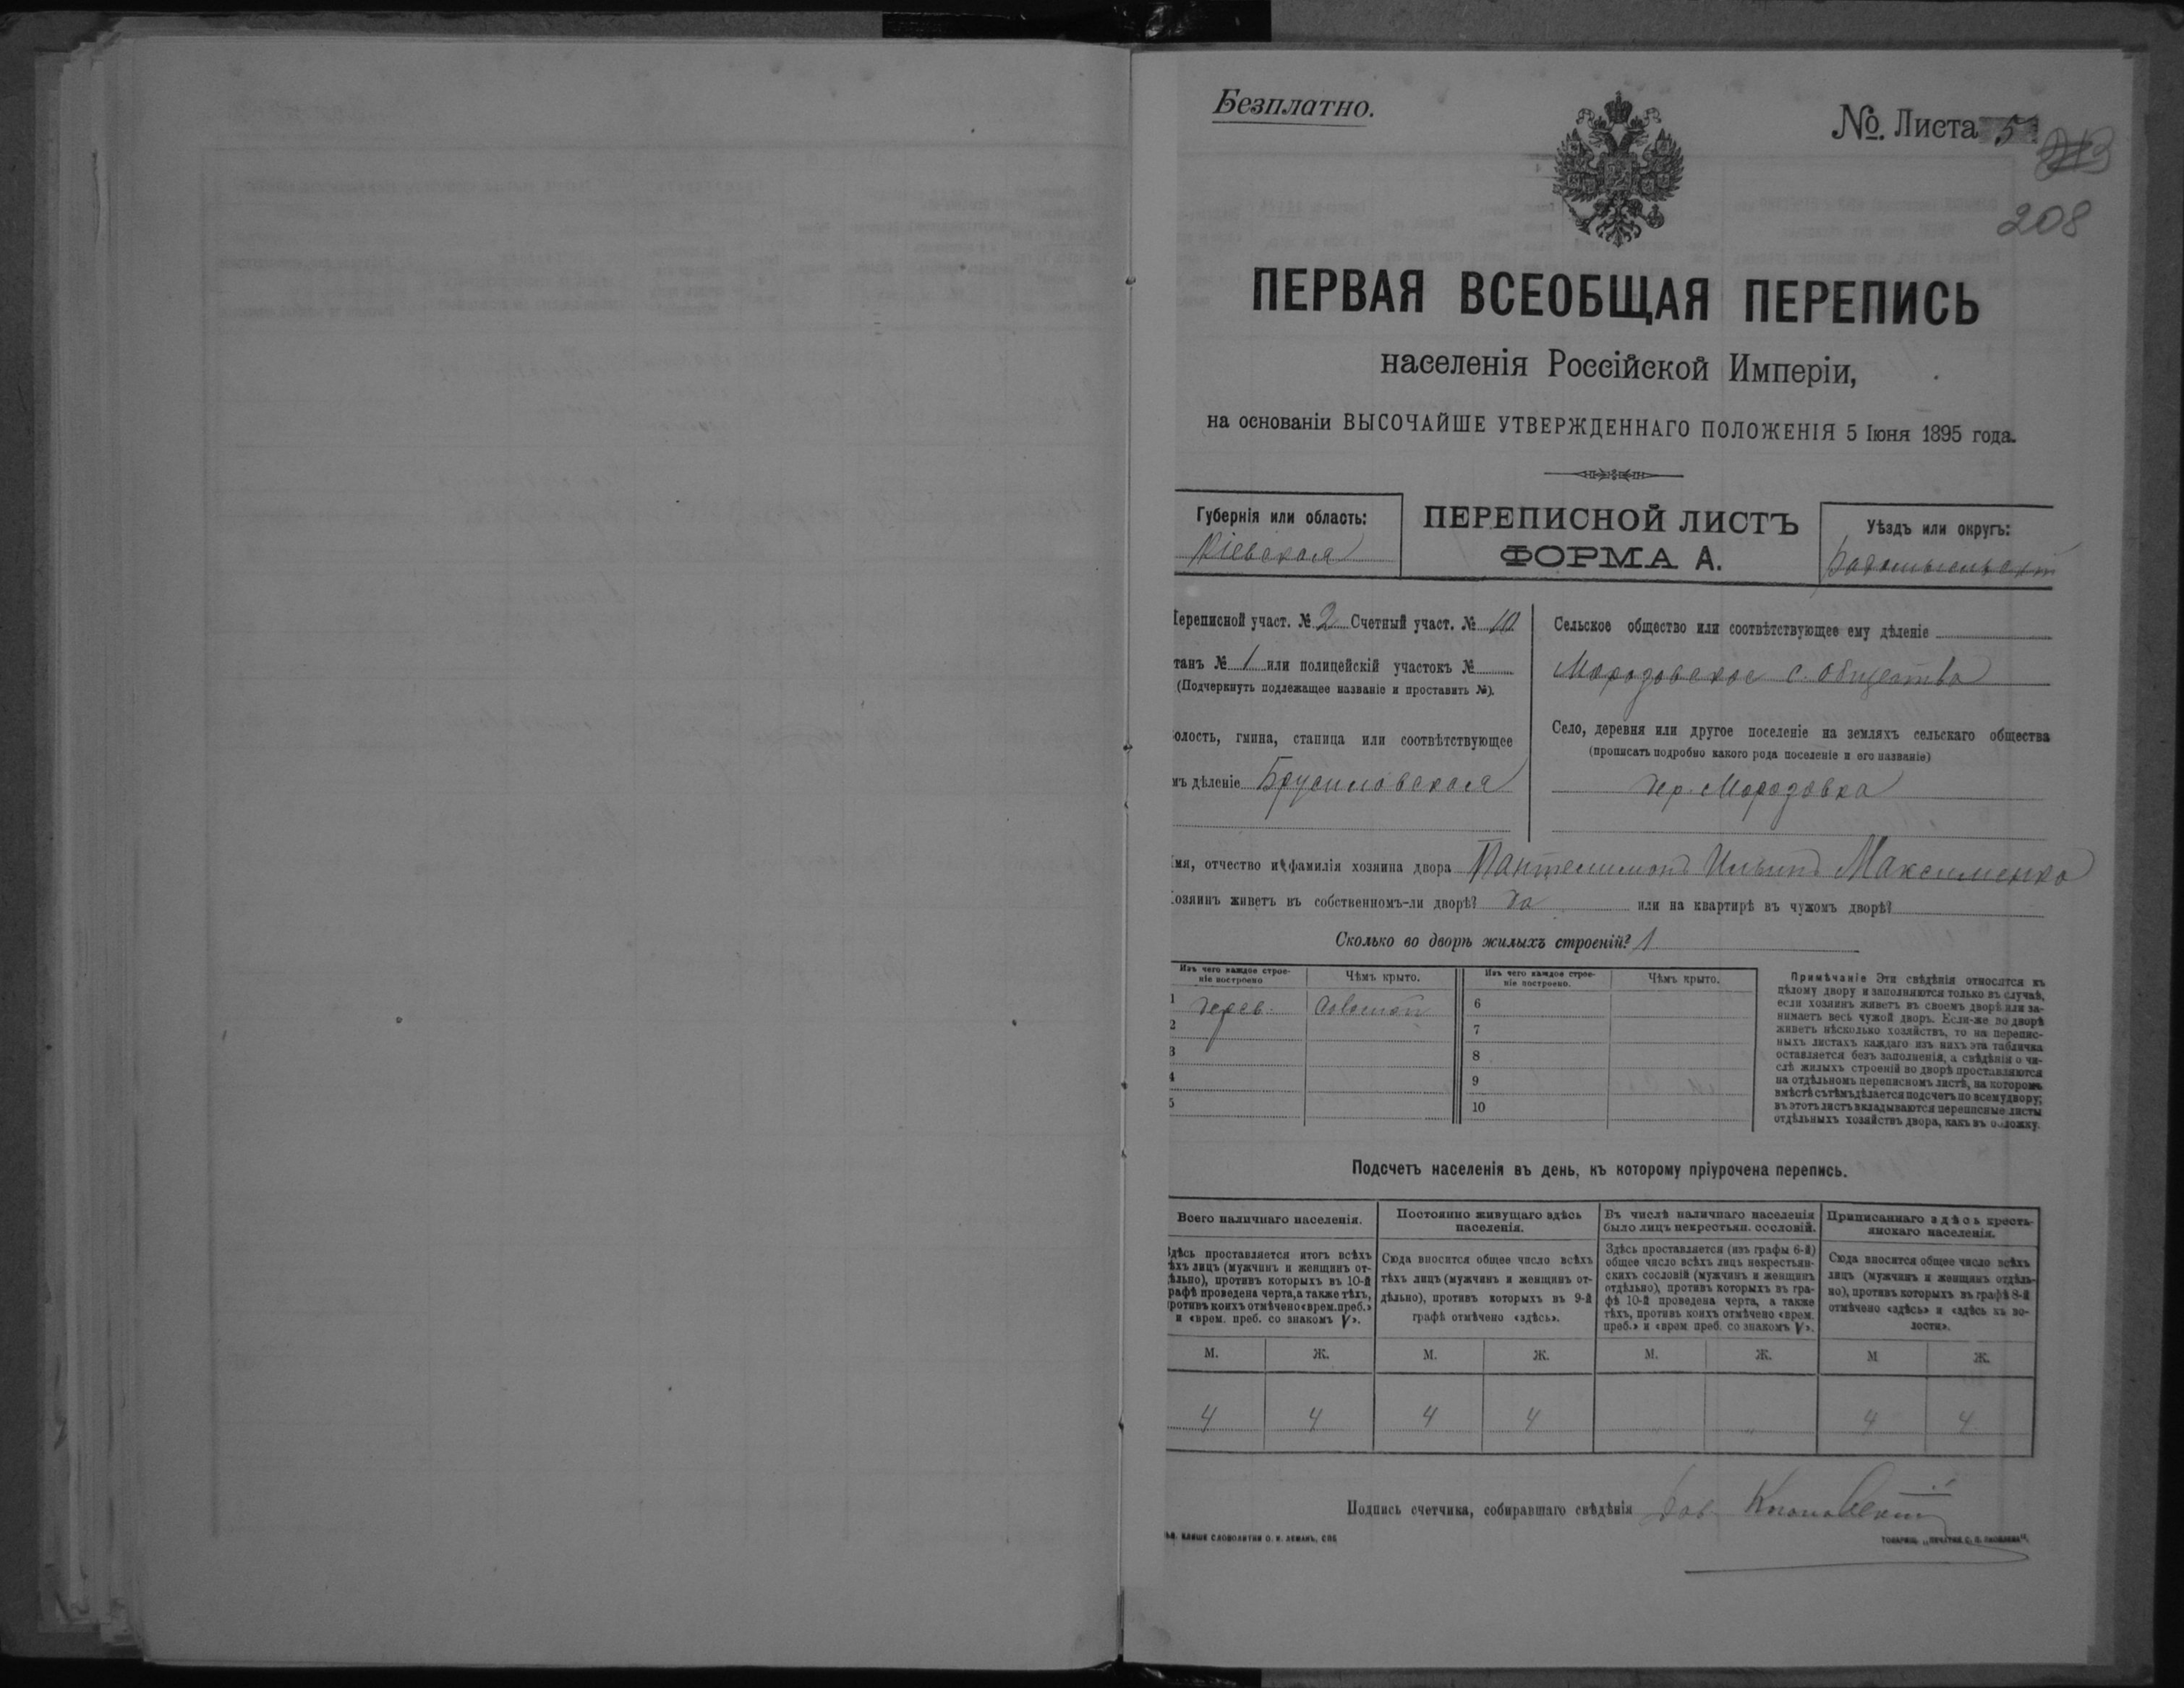 Безплатно.
№. Листа 5
208
ПЕРВАЯ ВСЕОБЩАЯ ПЕРЕПИСЬ
населенія Россійской Имперіи,
на основаніи ВЫСОЧАЙШЕ УТВЕРЖДЕННАГО ПОЛОЖЕНІЯ 5 Іюня 1895 года.
Губернія или область:
Кіевская
ПЕРЕПИСНОЙ ЛИСТЪ
ФОРМА А.
Уѣздъ или округъ:
Радомысльскій
Переписной участ. № 2 Счетный участ. № 10
танъ № 1 или полицейскій участокъ №
(Подчеркнуть подлежащее названіе и проставить №).
олость, гмина, станица или соотвѣтствующее
мъ дѣленіе Брусиловская
Сельское общество или соотвѣтствующее ему дѣленіе
Морозовское с. общество
Село, деревня или другое поселеніе на земляхъ сельскаго общества
(прописать подробно какого рода поселеніе и его названіе)
дер. Морозовка
мя, отчество и фамилія хозяина двора Пантелимонъ Ильинъ Максименко
озяинъ живетъ въ собственномъ-ли дворѣ? да или на квартирѣ въ чужомъ дворѣ?
Сколько во дворѣ жилыхъ строеній? 1
Изъ чего каждое строе-
ніе построено
Чѣмъ крыто.
Изъ чего каждое строе-
ніе построено.
Чѣмъ крыто.
1 дерев. соломой
2
3
4
5
6
7
8
9
10
Примѣчаніе Эти свѣдѣнія относятся къ
цѣлому двору и заполняются только въ случаѣ,
если хозяинъ живетъ въ своемъ дворѣ или за-
нимаетъ весь чужой дворъ. Если-же во дворѣ
живетъ нѣсколько хозяйствъ, то на перепис-
ныхъ листахъ каждаго изъ нихъ эта табличка
оставляется безъ заполненія, а свѣдѣнія о чи-
слѣ жилыхъ строеній во дворѣ проставляются
на отдѣльномъ переписномъ листѣ, на которомъ
вмѣстѣ съ тѣмъ дѣлается подсчетъ по всему двору;
въ этотъ листъ вкладываются переписные листы
отдѣльныхъ хозяйствъ двора, какъ въ обложку.
Подсчетъ населенія въ день, къ которому пріурочена перепись.
Всего наличнаго населенія.
Здѣсь проставляется итогъ всѣхъ
ѣхъ лицъ (мужчинъ и женщинъ от-
дѣльно), противъ которыхъ въ 10-й
рафѣ проведена черта, а также тѣхъ,
противъ коихъ отмѣчено «врем. преб.»
и «врем. преб. со знакомъ V».
Постоянно живущаго здѣсь
населенія.
Сюда вносится общее число всѣхъ
тѣхъ лицъ (мужчинъ и женщинъ от-
дѣльно), противъ которыхъ въ 9-й
графѣ отмѣчено «здѣсь».
Въ числѣ наличнаго населенія
было лицъ некрестьян. сословій.
Здѣсь проставляется (изъ графы 6-й)
общее число всѣхъ лицъ некрестьян-
скихъ сословій (мужчинъ и женщинъ
отдѣльно), противъ которыхъ въ гра-
фѣ 10-й проведена черта, а также
тѣхъ, противъ коихъ отмѣчено «врем.
преб.» и «врем. преб. со знакомъ V».
Приписаннаго здѣсь кресть-
янскаго населенія.
Сюда вносится общее число всѣхъ
лицъ (мужчинъ и женщинъ отдѣль-
но), противъ которыхъ въ графѣ 8-й
отмѣчено «здѣсь» и «здѣсь къ во-
лости».
М. Ж. М. Ж. М. Ж. М Ж.
4 4 4 4 " " 4 4
Подпись счетчика, собиравшаго свѣдѣнія
КЛИШЕ СЛОВОЛИТНИ О. И. ЛЕМАНЪ, СПБ
ТОВАРИЩ. „ПЕЧАТНЯ С. П. ЯКОВЛЕВА".